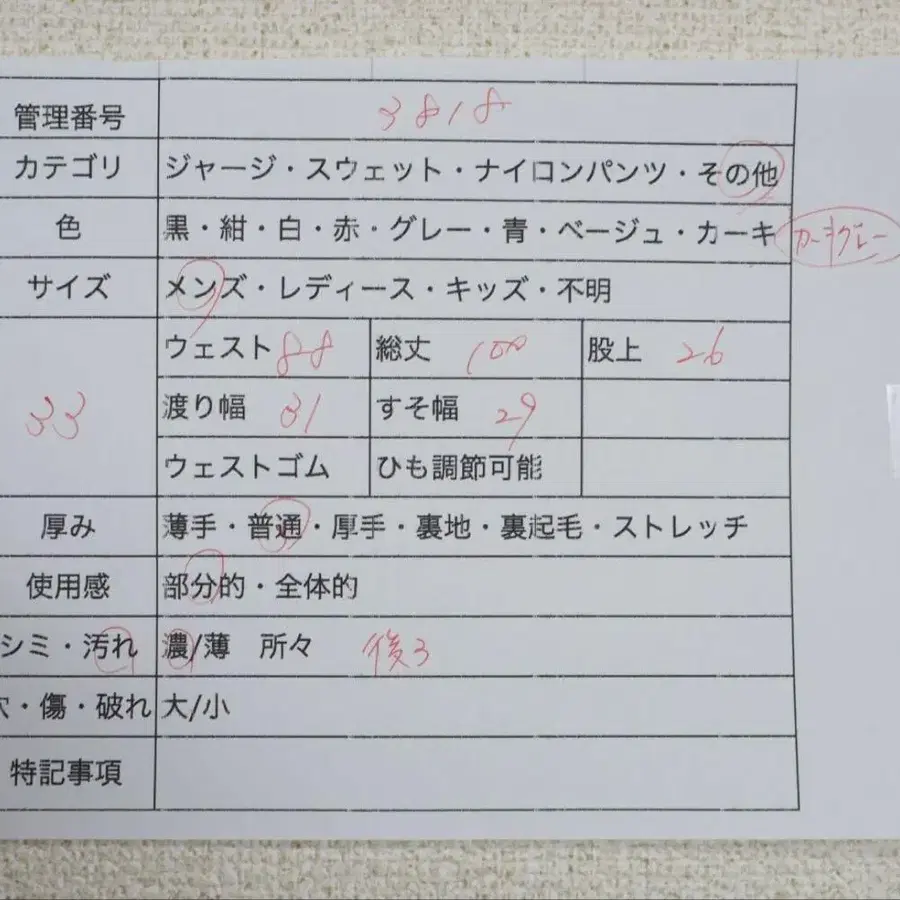 管理番号 3818
カテゴリ ジャージ・スウェット・ナイロンパンツ・その他
色 黒・紺・白・赤・グレー・青・ベージュ・カーキ カーキグレー
サイズ メンズ・レディース・キッズ・不明
33 ウェスト 88 総丈 100 股上 26
渡り幅 31 すそ幅 29
ウェストゴム ひも調節可能
厚み 薄手・普通・厚手・裏地・裏起毛・ストレッチ
使用感 部分的・全体的
シミ・汚れ 濃/薄 所々 後3
穴・傷・破れ 大/小
特記事項